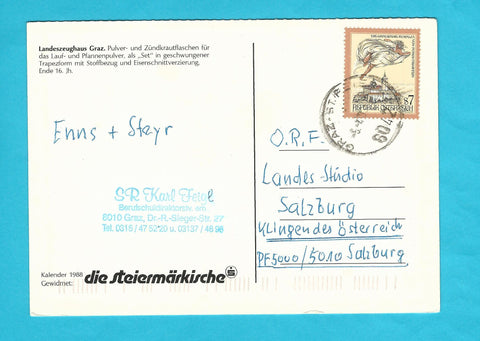 Landeszeughaus Graz. Pulver- und Zündkrautflaschen für
das Lauf- und Pfannenpulver, als „Set" in geschwungener
Trapezform mit Stoffbezug und Eisenschnittverzierung,
Ende 16. Jh.
Enns + Steyr
SR Karl Feigl
Berufschuldirektorstv. em
8010 Graz, Dr.-R.-Sieger-Str. 27
Kalender 1988
Gewidmet: die Steiermärkische
S 7
REPUBLIK ÖSTERREICH
GRAZ-ST.P
O.R.F.
Landes Stúdio
Salzburg
Klingendes Österreich
PF 5000/5010 Salzburg